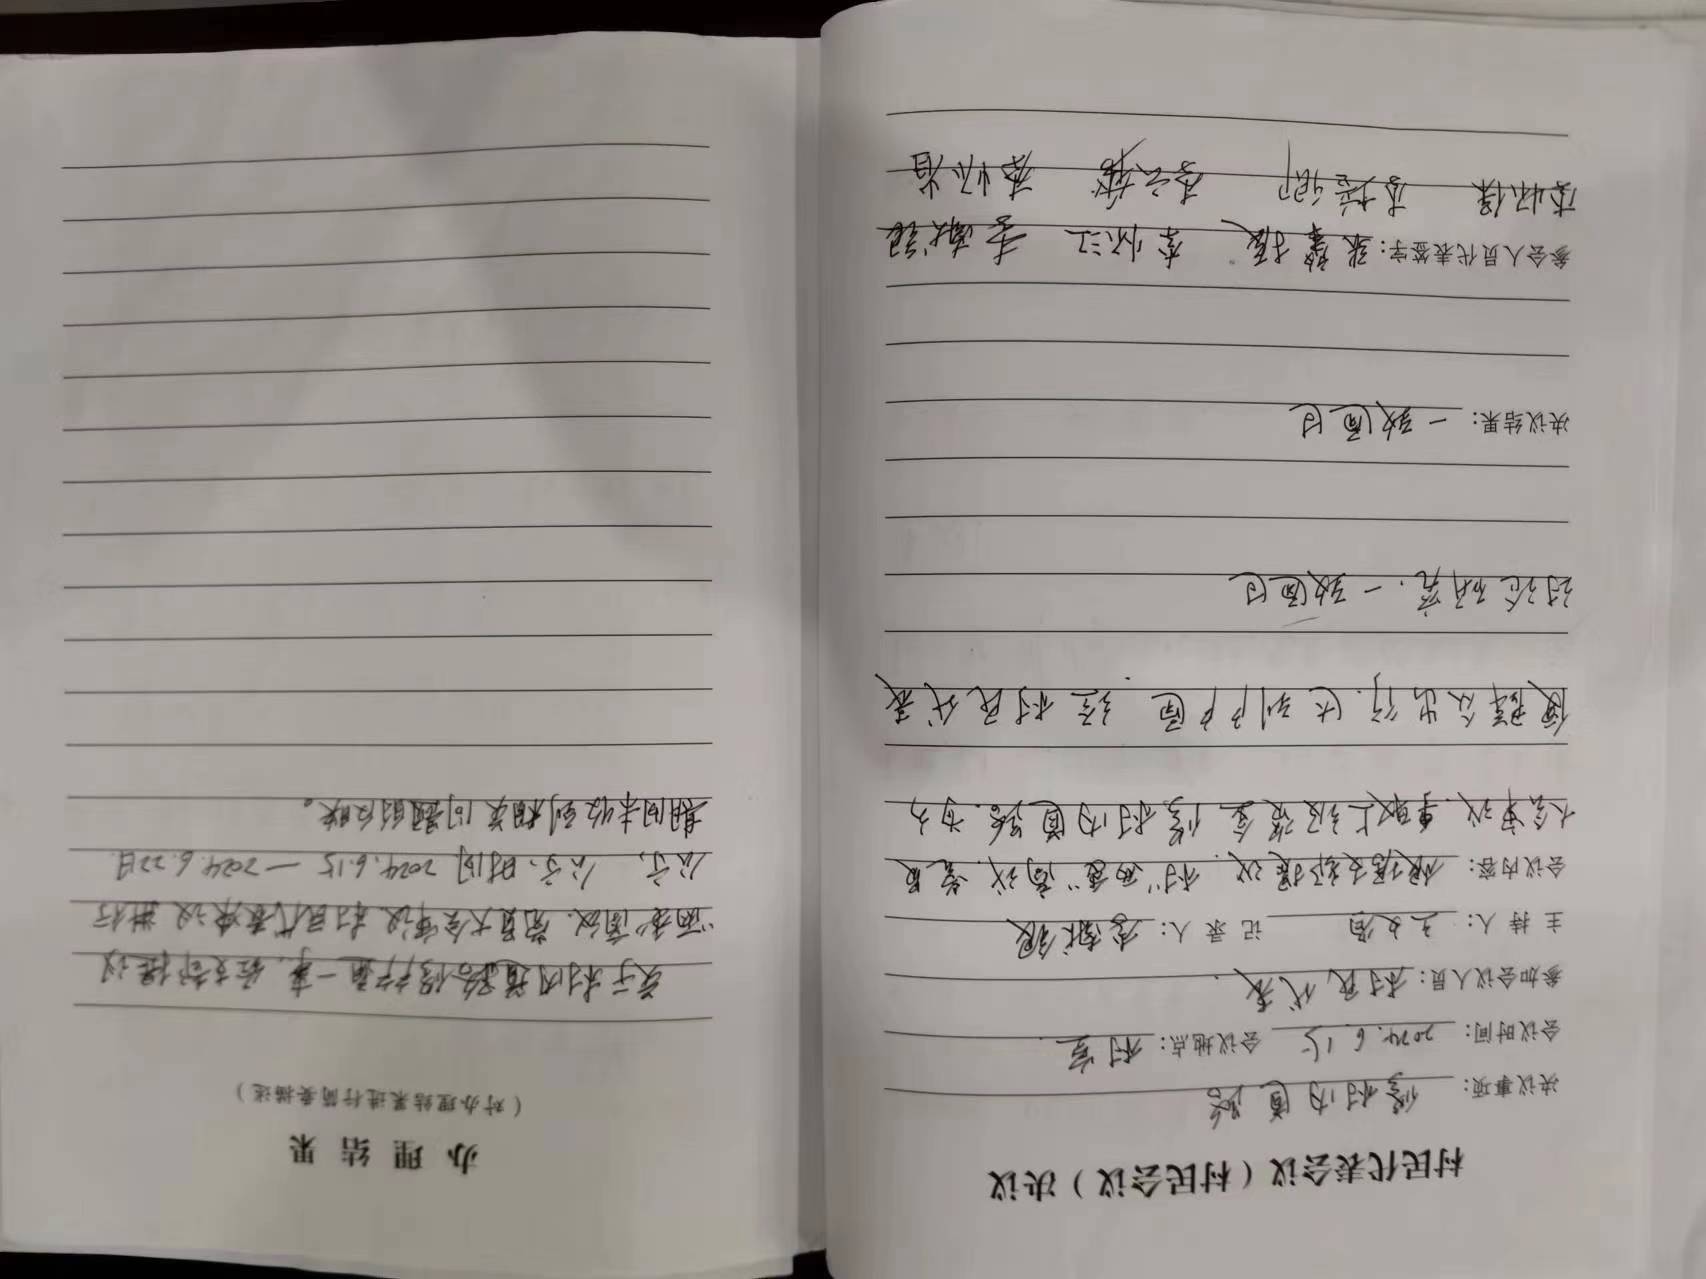 村民代表会议（村民会议）决议
决议事项： 修村内道路
会议时间： 2024.6.15 会议地点： 村室
参加会议人员： 村民代表.
主 持 人： 记 录 人： 李献银
会议内容： 根据支部提议. 村"两委"商议. 党员
大会审议. 争取上级资金 修村内道路. 为方
便群众出行. 达到户户通 经村民代表
讨论研究. 一致通过
决议结果： 一致通过
参会人员代表签字： 李怀江 李献银
李怀保
办 理 结 果
（对办理结果进行简要描述）
关于村内道路修扩建一事, 经支部提议
"两委"商议. 党员大会审议 村民代表决议 进行
公示, 公示时间 2024.6.15 — 2024.6.22日.
期间未收到相关问题的反映。